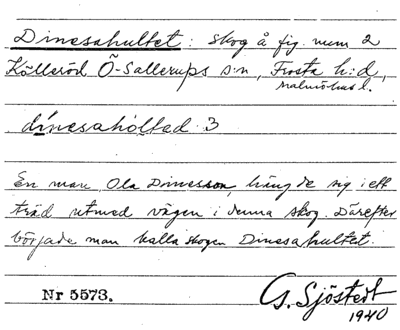 Dinesahultet: skog å fig. num 2
Källeröd Ö-Sallerups s:n, Frosta h:d,
Malmöhus l.
dinesahòltad 3
En man, Ola Dinesson, hängde sig i ett
träd utmed vägen i denna skog. Därefter
började man kalla skogen Dinesahultet.
Nr 5573.
G. Sjöstedt
1940